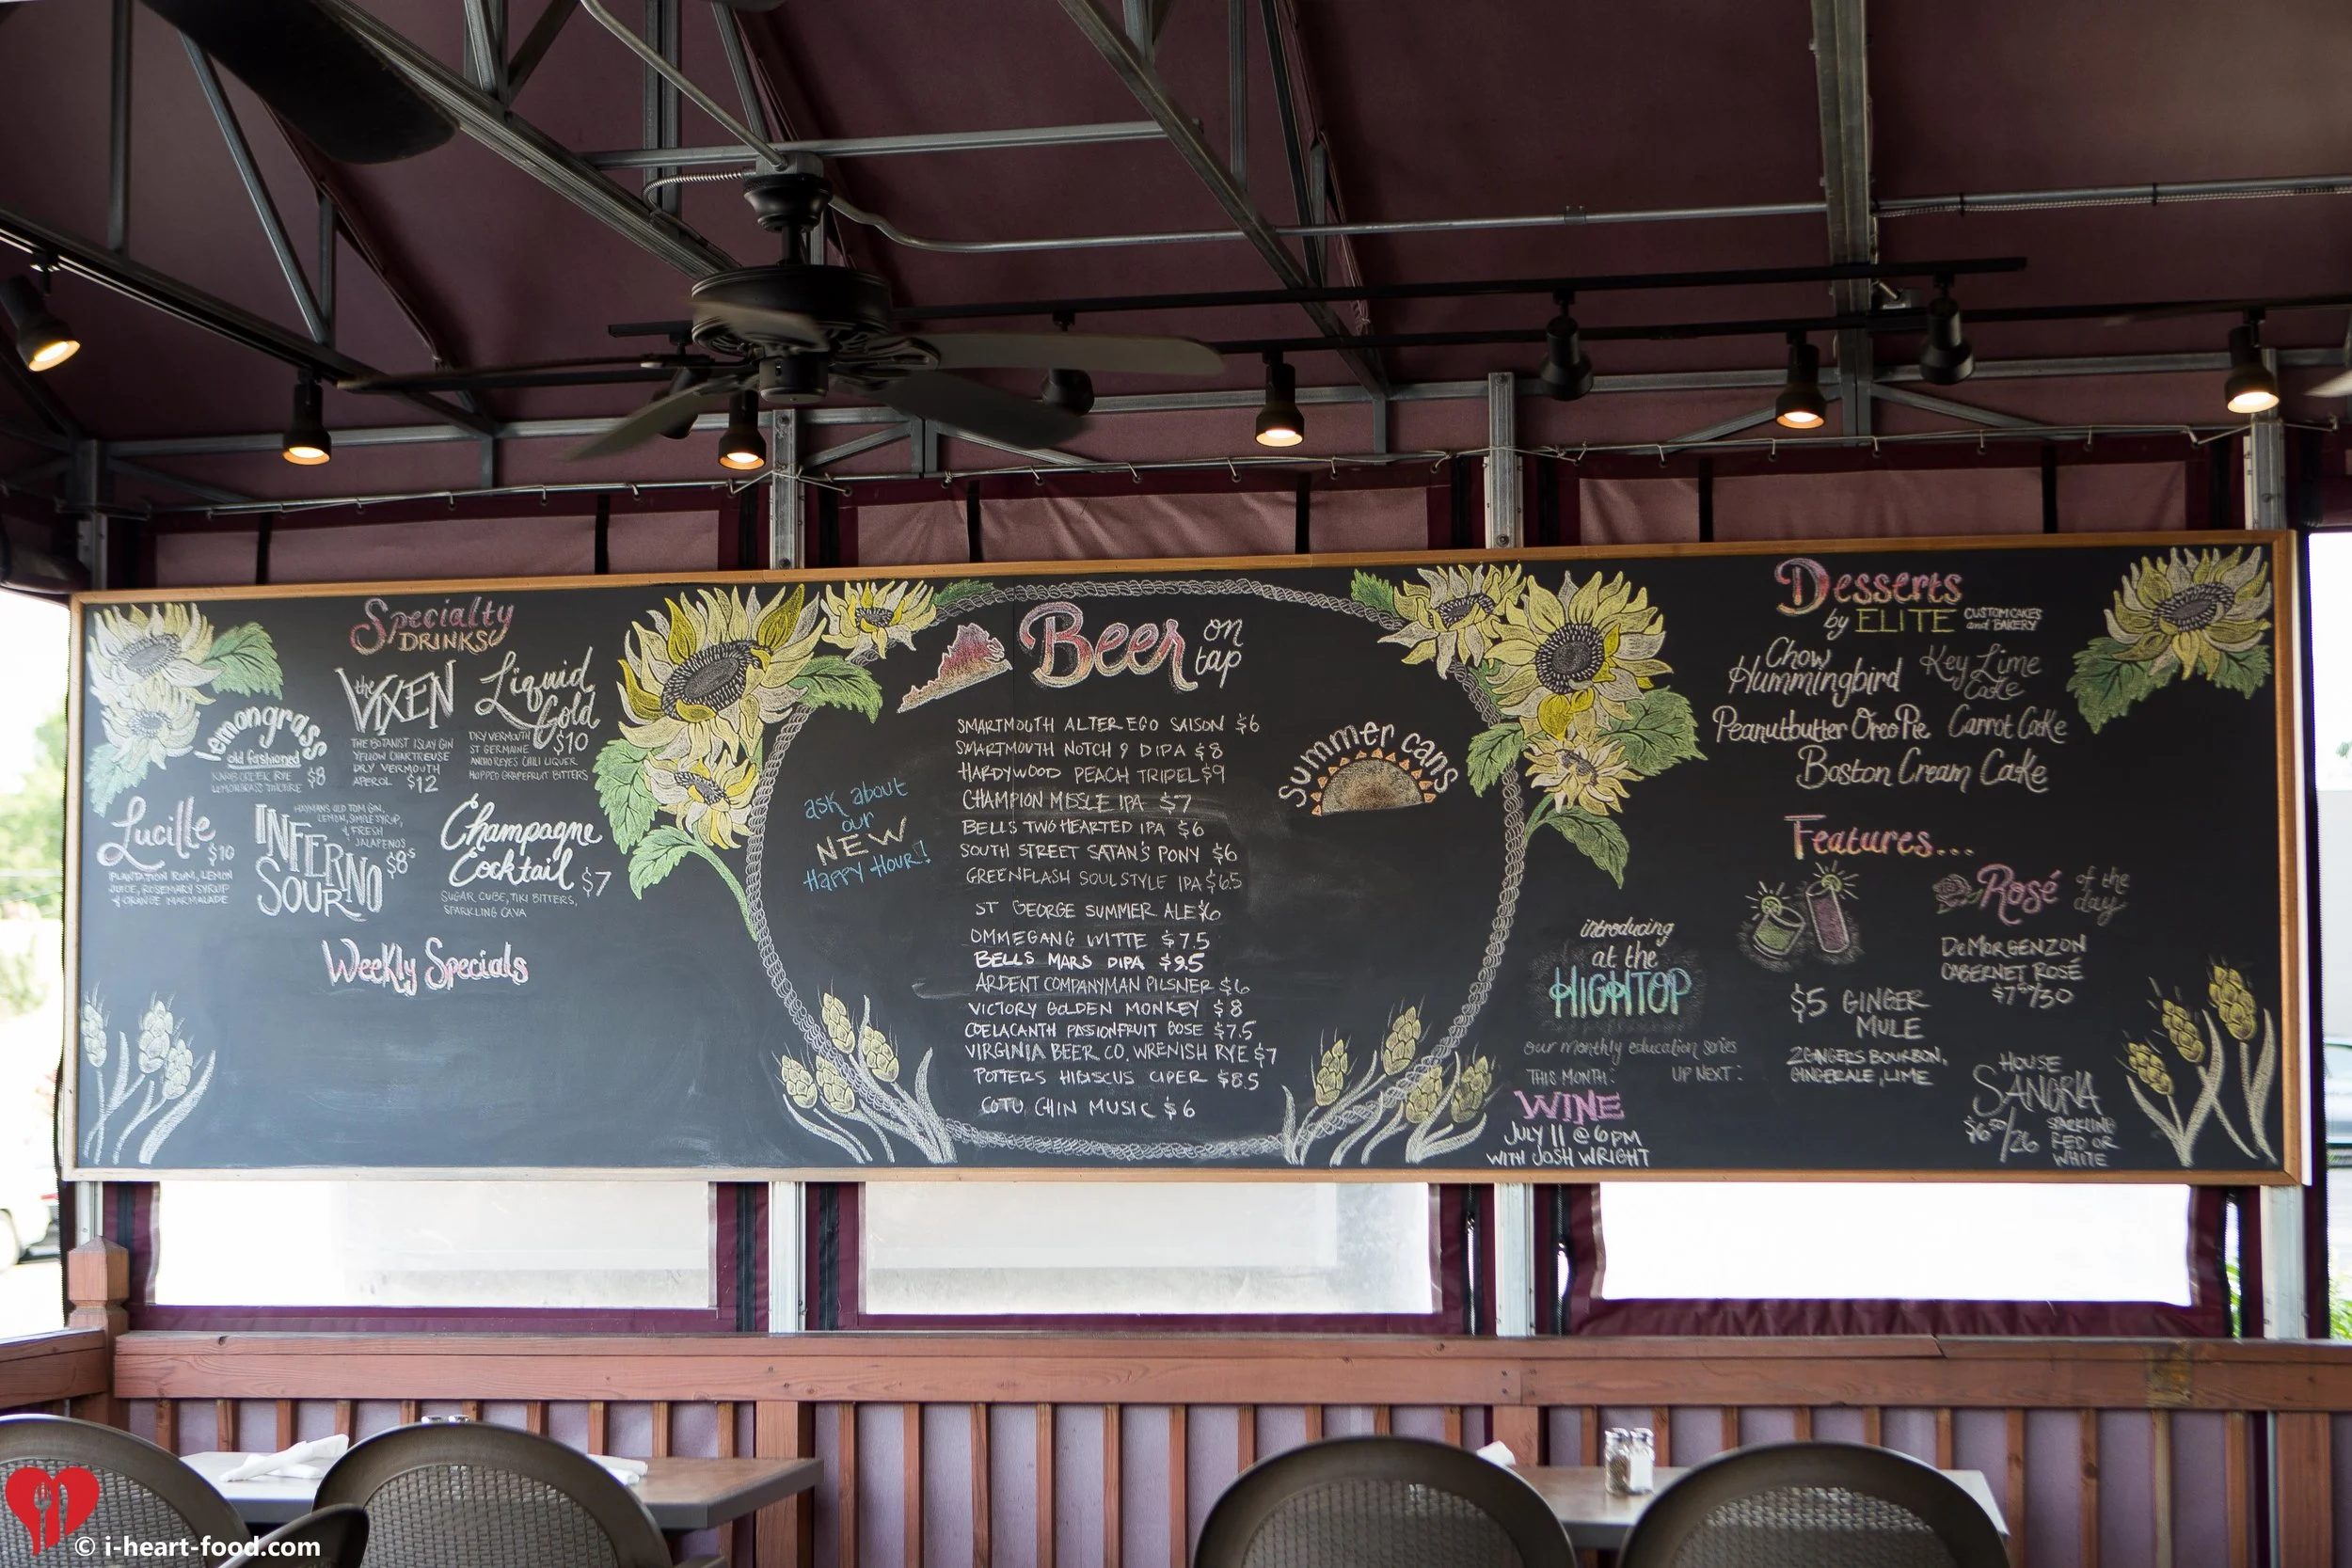 Specialty
DRINKS
Lemongrass
old fashioned
KNOB CREEK RYE
LEMONGRASS
$8
the VIXEN
THE BOTANIST ISLAY GIN
YELLOW CHARTREUSE
DRY VERMOUTH
APEROL $12
Liquid
Gold
$10
DRY VERMOUTH
ST GERMAINE
ANCHO REYES CHILI LIQUER
HOPPED GRAPEFRUIT BITTERS
Lucille
$10
PLANTATION RUM, LEMON
JUICE, ROSEMARY SYRUP
& ORANGE MARMALADE
HAYMANS OLD TOM GIN,
LEMON, SIMPLE SYRUP,
& FRESH
JALAPENOS
INFERNO
SOUR
$8.5
Champagne
Cocktail
$7
SUGAR CUBE, TIKI BITTERS,
SPARKLING CAVA
Weekly Specials
Beer on
tap
ask about
our
NEW
Happy Hour!
SMARTMOUTH ALTER EGO SAISON $6
SMARTMOUTH NOTCH 9 DIPA $8
HARDYWOOD PEACH TRIPEL $9
CHAMPION MISSLE IPA $7
BELLS TWO HEARTED IPA $6
SOUTH STREET SATAN'S PONY $6
GREENFLASH SOUL STYLE IPA $6.5
ST GEORGE SUMMER ALE $6
OMMEGANG WITTE $7.5
BELLS MARS DIPA $9.5
ARDENT COMPANYMAN PILSNER $6
VICTORY GOLDEN MONKEY $8
COELACANTH PASSIONFRUIT GOSE $7.5
VIRGINIA BEER CO. WRENISH RYE $7
POTTERS HIBISCUS CIDER $8.5
COTU CHIN MUSIC $6
Summer cans
Desserts
by ELITE CUSTOM CAKES
and BAKERY
Chow
Hummingbird
Key Lime
Cake
Peanutbutter Oreo Pie
Carrot Cake
Boston Cream Cake
Features...
introducing
at the
HIGHTOP
our monthly education series
THIS MONTH:
UP NEXT:
WINE
JULY 11 @ 6PM
WITH JOSH WRIGHT
$5 GINGER
MULE
2 GINGERS BOURBON,
GINGERALE, LIME
Rosé of the
day
DeMORGENZON
CABERNET ROSÉ
$7.50/30
HOUSE
SANGRIA
$6.50/26
SPARKLING
RED OR
WHITE
© i-heart-food.com